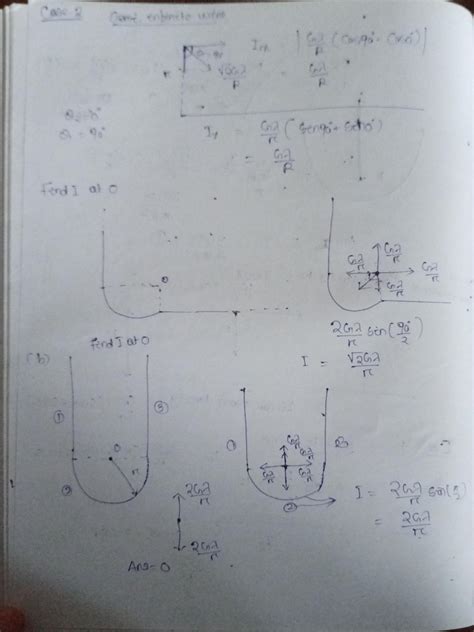 Case 2 Semi infinite wire
Ix = | Gλ/R (Cos90° - Cos0°) |
√2Gλ/R = Gλ/R
θ1=0°
θ = 90°
Iy = Gλ/R (Sin90° + Sin0°)
= Gλ/R
Find I at O
O
Gλ/R Gλ/R Gλ/R Gλ/R
2Gλ/R Sin(90°/2)
I = √2Gλ/R
Find I at O
(b)
① ③ ② O r
① ②
Gλ/R Gλ/R Gλ/R Gλ/R
2Gλ/R
2Gλ/R
Ans=0
I = 2Gλ/R Sin(
= 2Gλ/R